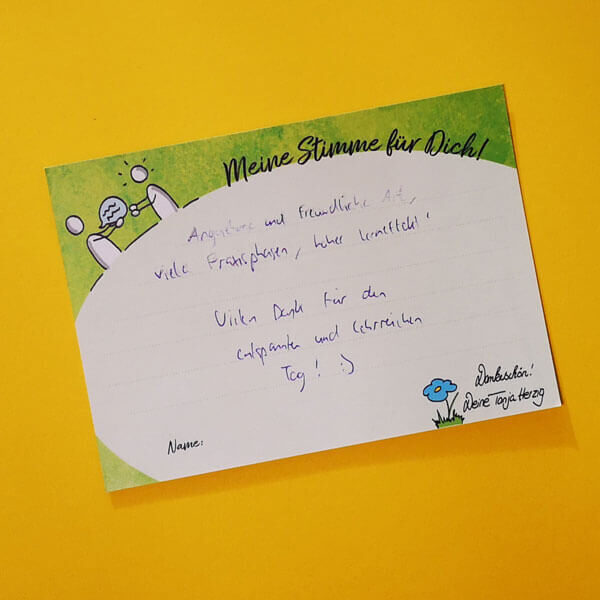 Meine Stimme für Dich!
Angenehme und freundliche Art,
viele Praxisphasen, hoher Lerneffekt!
Vielen Dank für den
entspannten und lehrreichen
Tag! :)
Dankeschön!
Deine Tanja Herzig
Name: